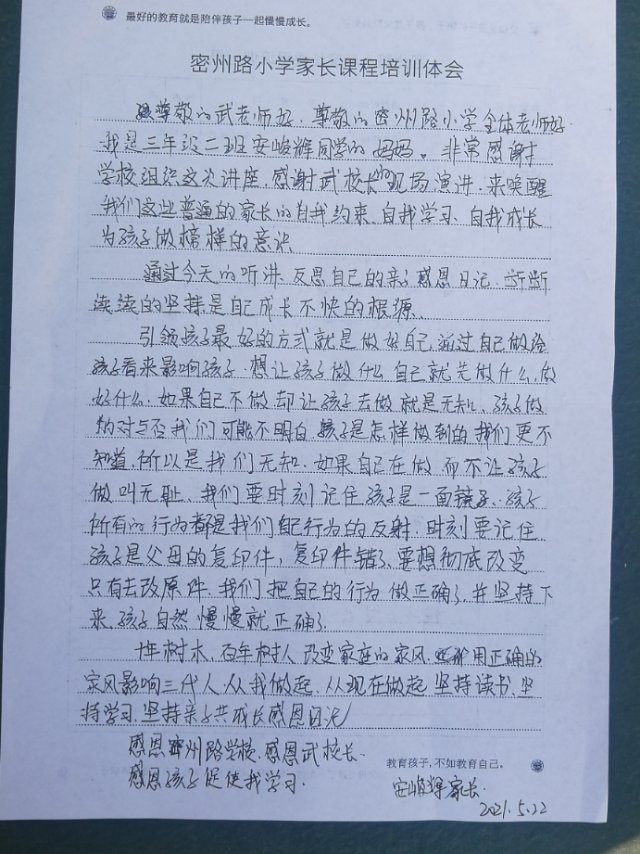 最好的教育就是陪伴孩子一起慢慢成长。
密州路小学家长课程培训体会
尊敬的武老师好、尊敬的密州路小学全体老师好
我是三年级二班安峻辉同学的妈妈。非常感谢
学校组织这次讲座,感谢武校长的现场演讲.来唤醒
我们这些普通的家长的自我约束、自我学习、自我成长
为孩子做榜样的意识
通过今天的听讲、反思自己的亲子感恩日记、断断
续续的坚持是自己成长不快的根源、
引领孩子最好的方式就是做好自己,通过自己做给
孩子看来影响孩子.想让孩子做什么自己就先做什么,做
好什么.如果自己不做却让孩子去做就是无知、孩子做
的对与否我们可能不明白、孩子是怎样做到的我们更不
知道.所以是我们无知.如果自己在做而不让孩子
做叫无耻、我们要时刻记住孩子是一面镜子.孩子
所有的行为都是我们自己行为的反射.时刻要记住
孩子是父母的复印件,复印件错了、要想彻底改变
只有去改原件.我们把自己的行为做正确了,并坚持下
来.孩子自然慢慢就正确了.
十年树木、百年树人 改变家庭的家风 用正确的
家风影响三代人.从我做起、从现在做起 坚持读书.坚
持学习.坚持亲子共成长感恩日记!
感恩密州路学校.感恩武校长.
教育孩子,不如教育自己。
感恩孩子促使我学习.
安峻辉家长.
2021.5.22